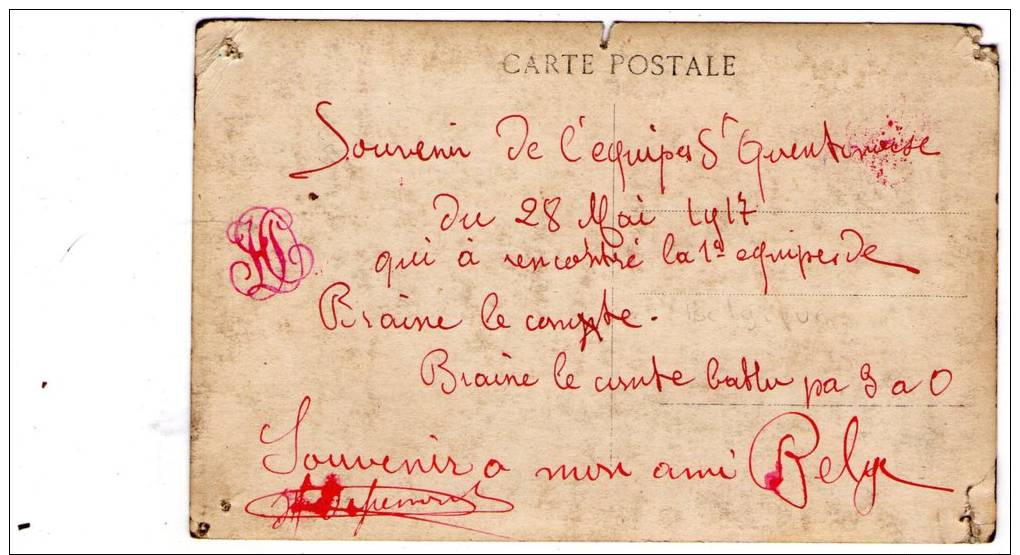 CARTE POSTALE
Souvenir de l'equipe St Quentinoise
du 28 Mai 1917
qui à rencontré la 1e equipe de
Braine le comte.
Braine le comte battu pa 3 a 0
Souvenir a mon ami Belge